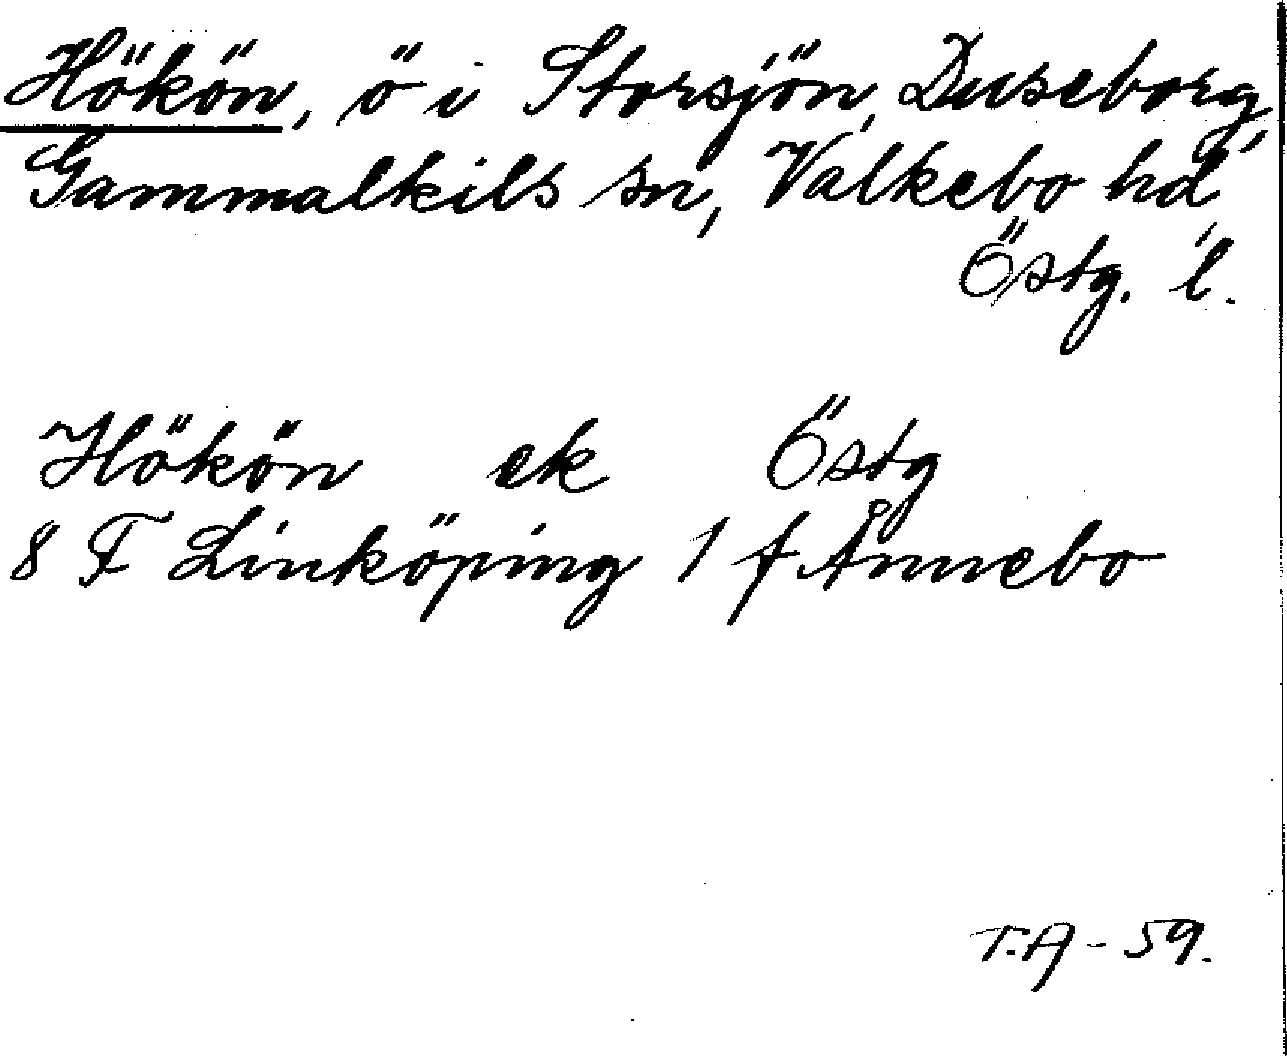 Hökön, ö i Storsjön, Duseborg,
Gammalkils sn, Valkebo hd,
Östg. l.
Hökön ek Östg
8 F Linköping 1 f Ånnebo
T.A - 59.